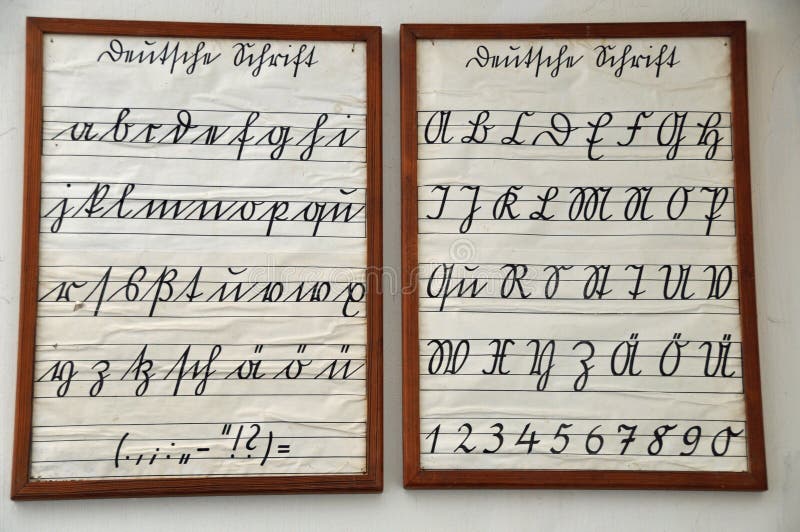 Deutsche Schrift
a b c d e f g h i
j k l m n o p qu
r ſ s ß t u v w x
y z tz ſch ä ö ü
( . , ; : „ - " ! ? ) =
Deutsche Schrift
A B C D E F G H
I J K L M N O P
Qu R S St T U V
W X Y Z Ä Ö Ü
1 2 3 4 5 6 7 8 9 0
dreamstime